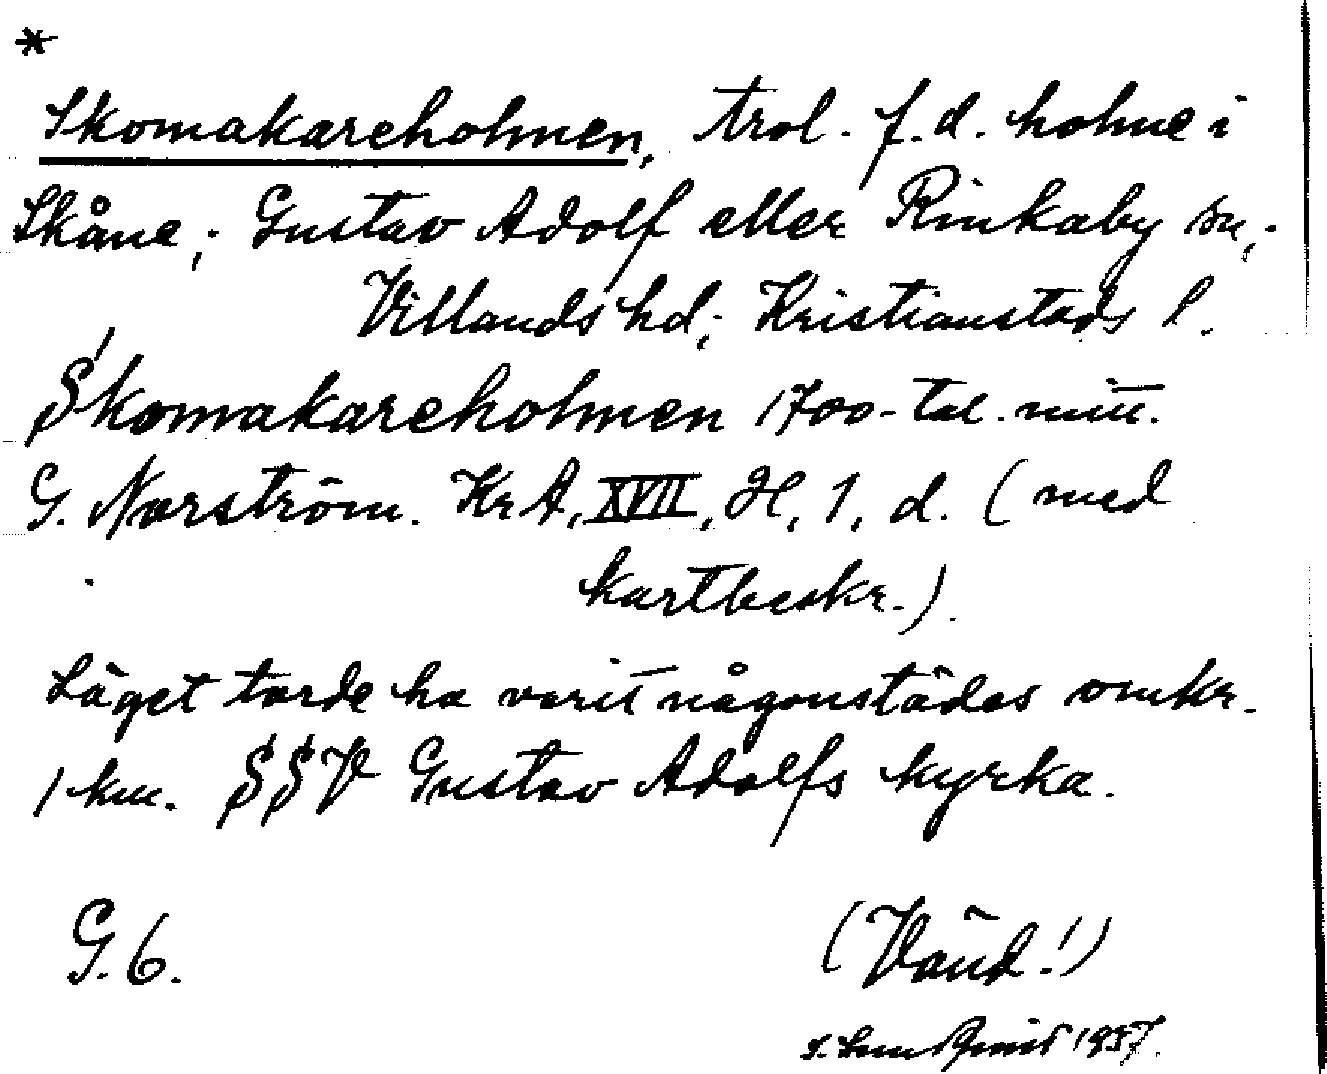 *
Skomakareholmen, trol. f.d. holme i
Skåne; Gustav Adolf eller Rinkaby sn,
Villands hd; Kristianstads l.
Skomakareholmen 1700-tal. mitt.
G. Norström. KrA, XVII, H, 1, d. (med
kartbeskr.).
Läget torde ha varit någonstädes omkr.
1 km. SSV Gustav Adolfs kyrka.
G. 6.
(Vänd!)
1957.